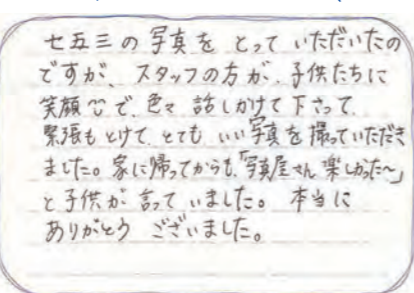 七五三の写真を とって いただいたの
ですが、スタッフの方が、子供たちに
笑顔で、色々 話しかけて下さって、
緊張もとけて、とても いい写真を撮っていただき
ました。家に帰ってからも、「写真屋さん 楽しかった〜」
と子供が 言って いました。 本当に
ありがとう ございました。